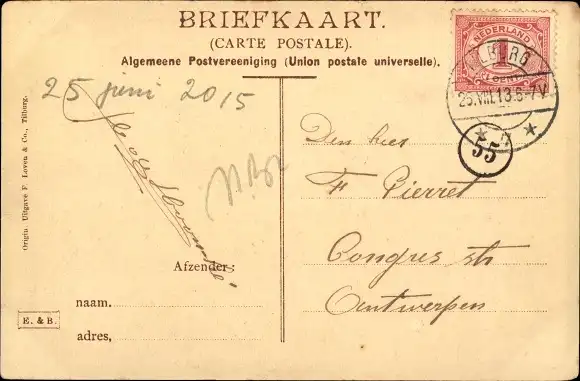 BRIEFKAART.
(CARTE POSTALE).
Algemeene Postvereeniging (Union postale universelle).
NEDERLAND
1
TILBURG
25.VIII.13.6-7V
55
25 juni 2015
Den heer
F Pierret
Congres str
Antwerpen
Afzender:
naam.
adres,
E. & B.
Origin. Uitgave F. Loven & Co., Tilburg.